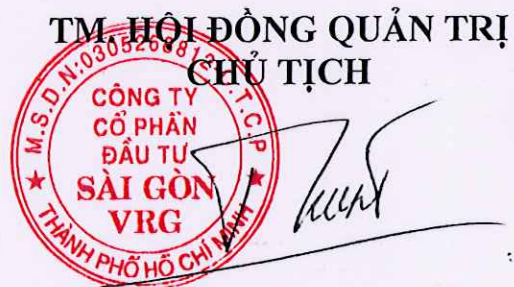 TM. HỘI ĐỒNG QUẢN TRỊ
CHỦ TỊCH
M.S.D.N:0305268812 T.C.P
CÔNG TY
CỔ PHẦN
ĐẦU TƯ
SÀI GÒN
VRG
THÀNH PHỐ HỒ CHÍ MINH